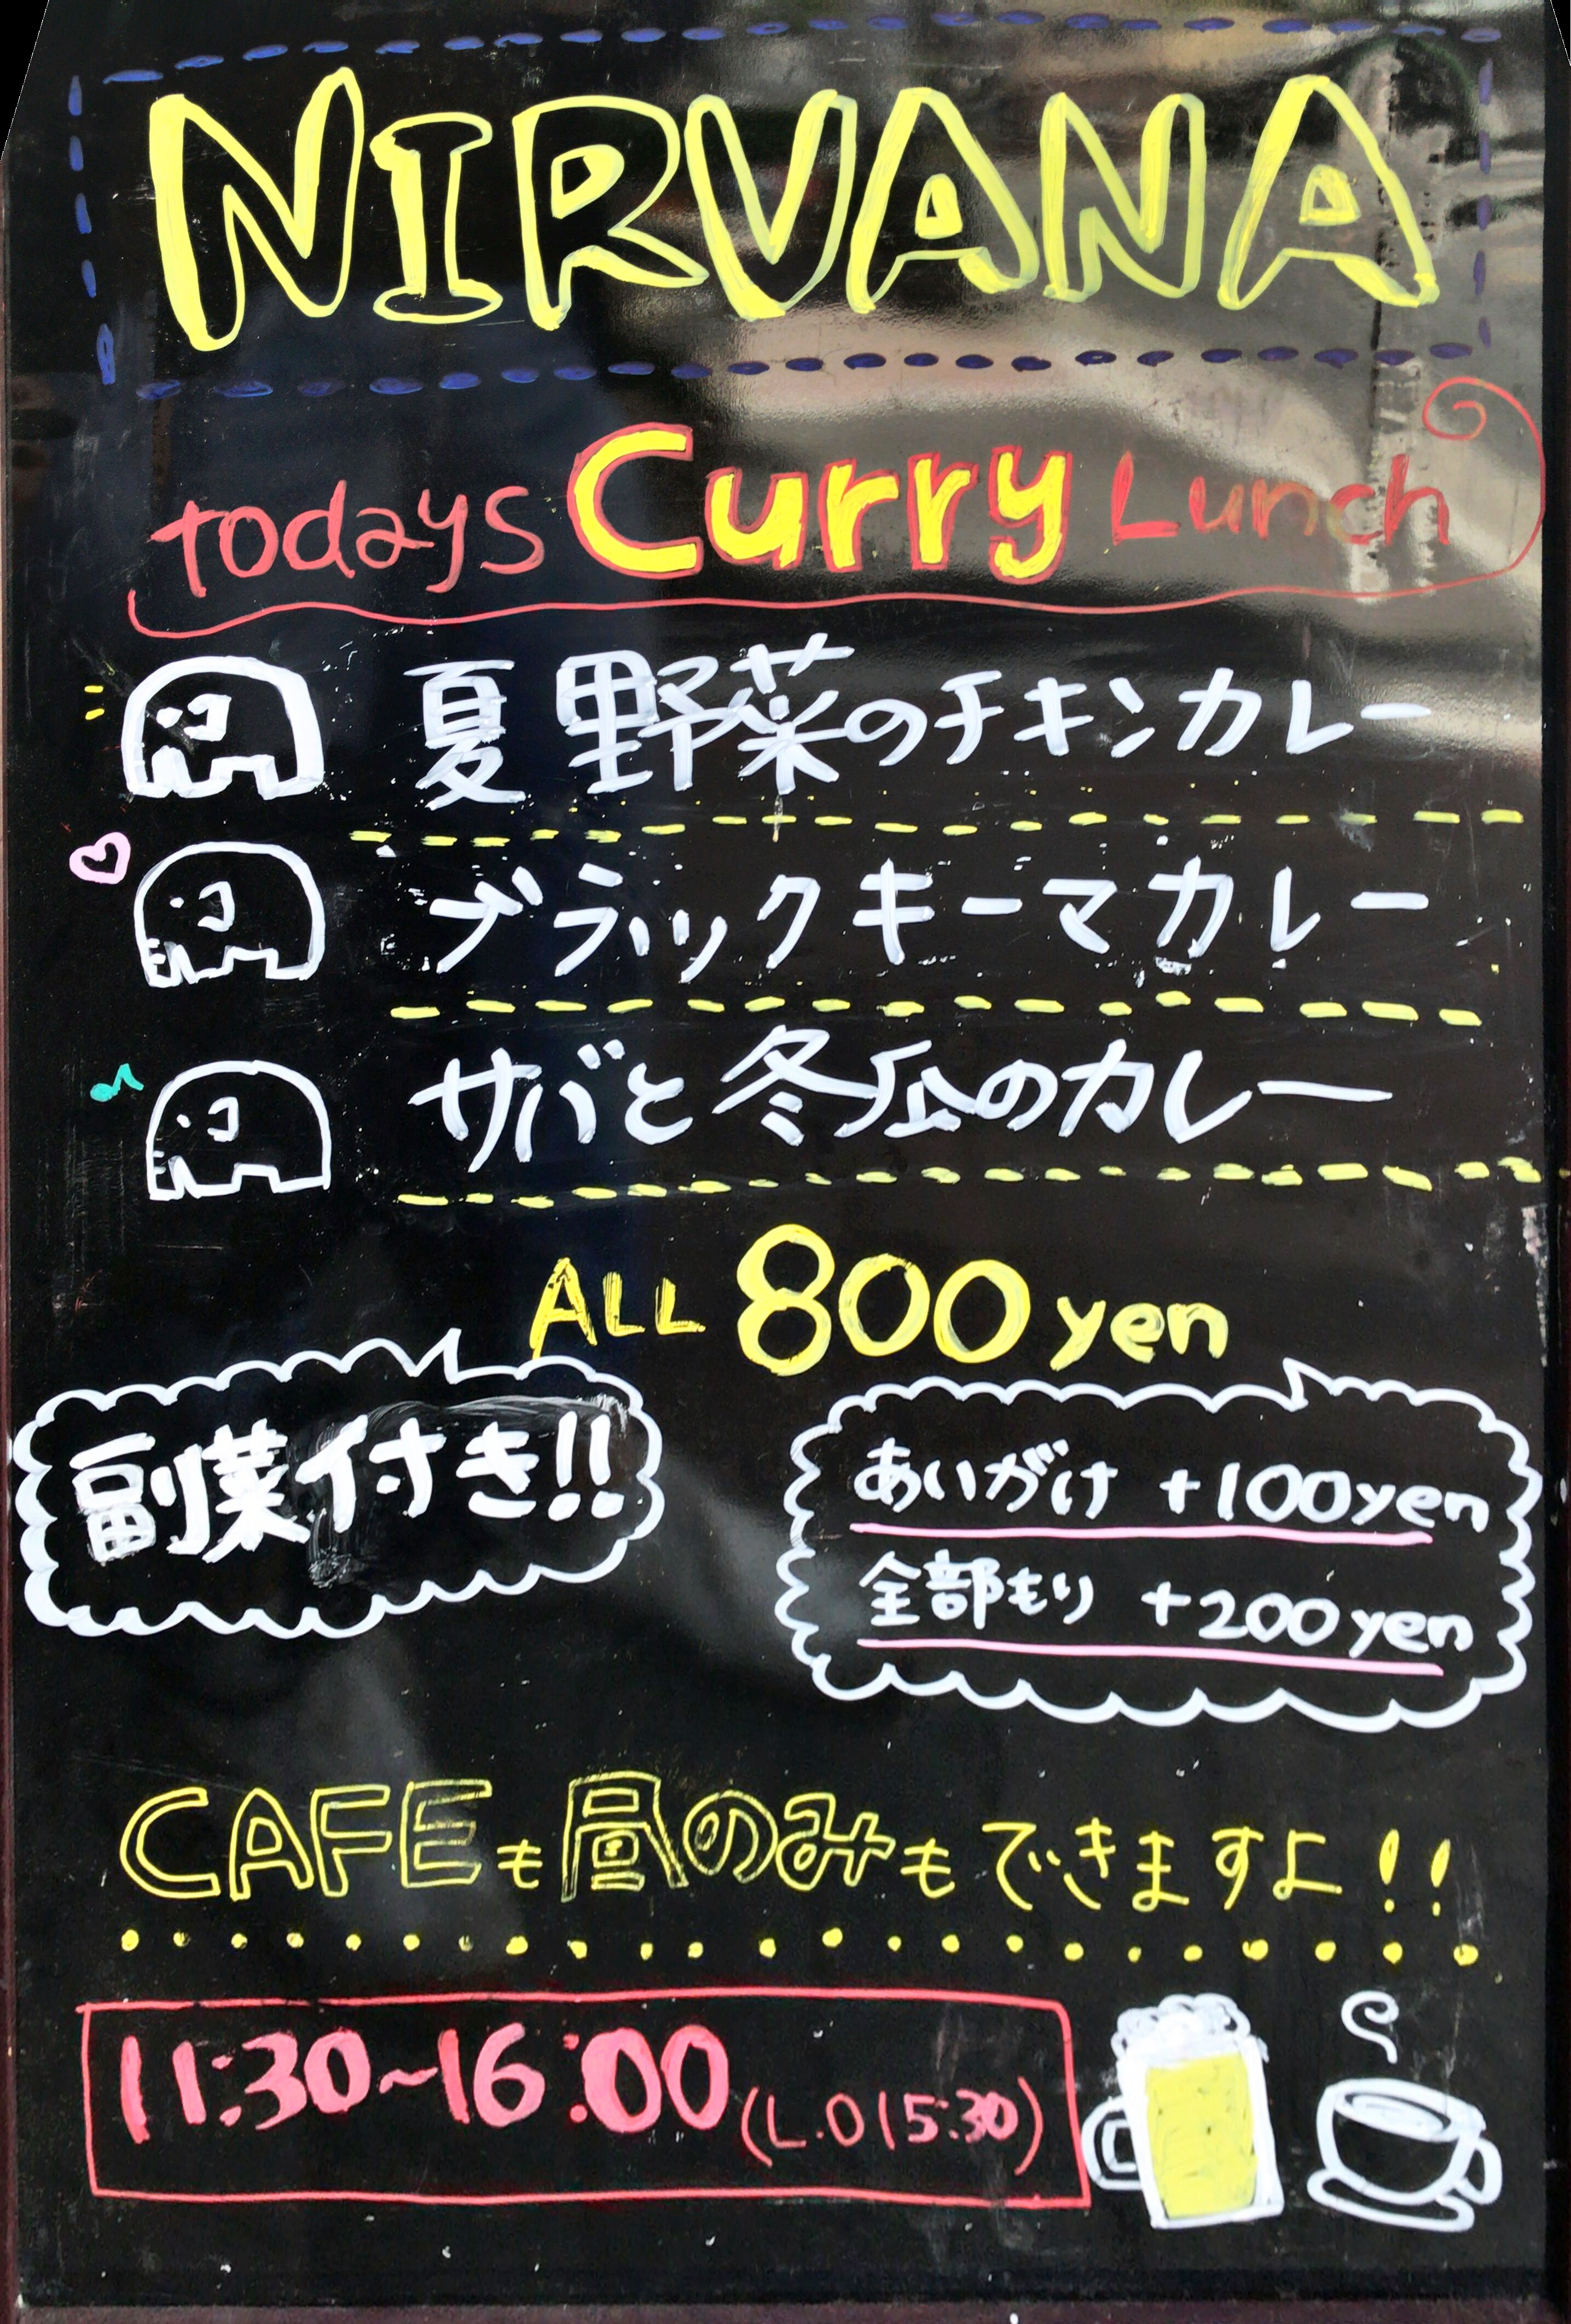 NIRVANA
todays Curry Lunch
夏野菜のチキンカレー
ブラックキーマカレー
サバと冬瓜のカレー
ALL 800 yen
副菜付き!!
あいがけ +100yen
全部もり +200yen
CAFEも昼のみもできますよ!!
11:30~16:00(L.O 15:30)